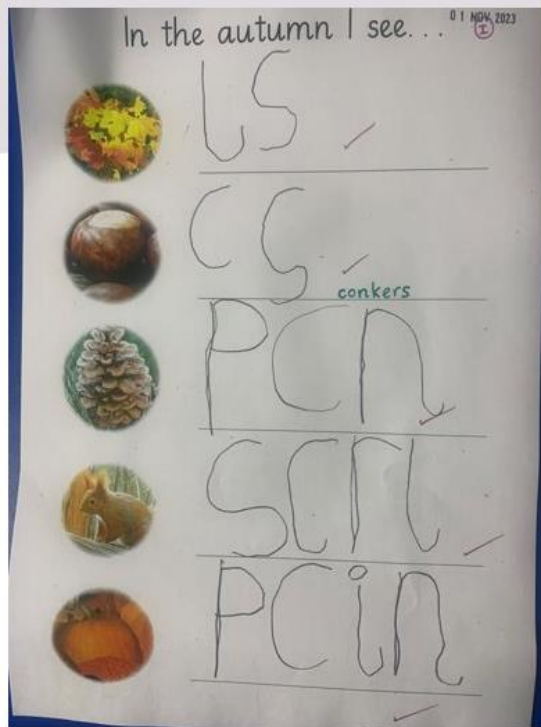 In the autumn I see...
01 NOV 2023
I
ls
cs
conkers
PCn
scrl
PCin